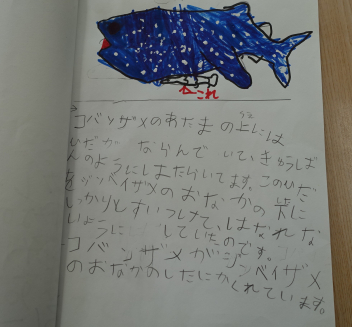 これ
コバンザメのあたまの上には
ひだが ならんで いてきゅうば
んのようにはたらいてます。このひだ
をジンベイザメのおなかの下に
しっかりとすいつけて、はなれな
いように していたのです。
コバンザメがジンベイザメ
のおなかのしたにかくれています。